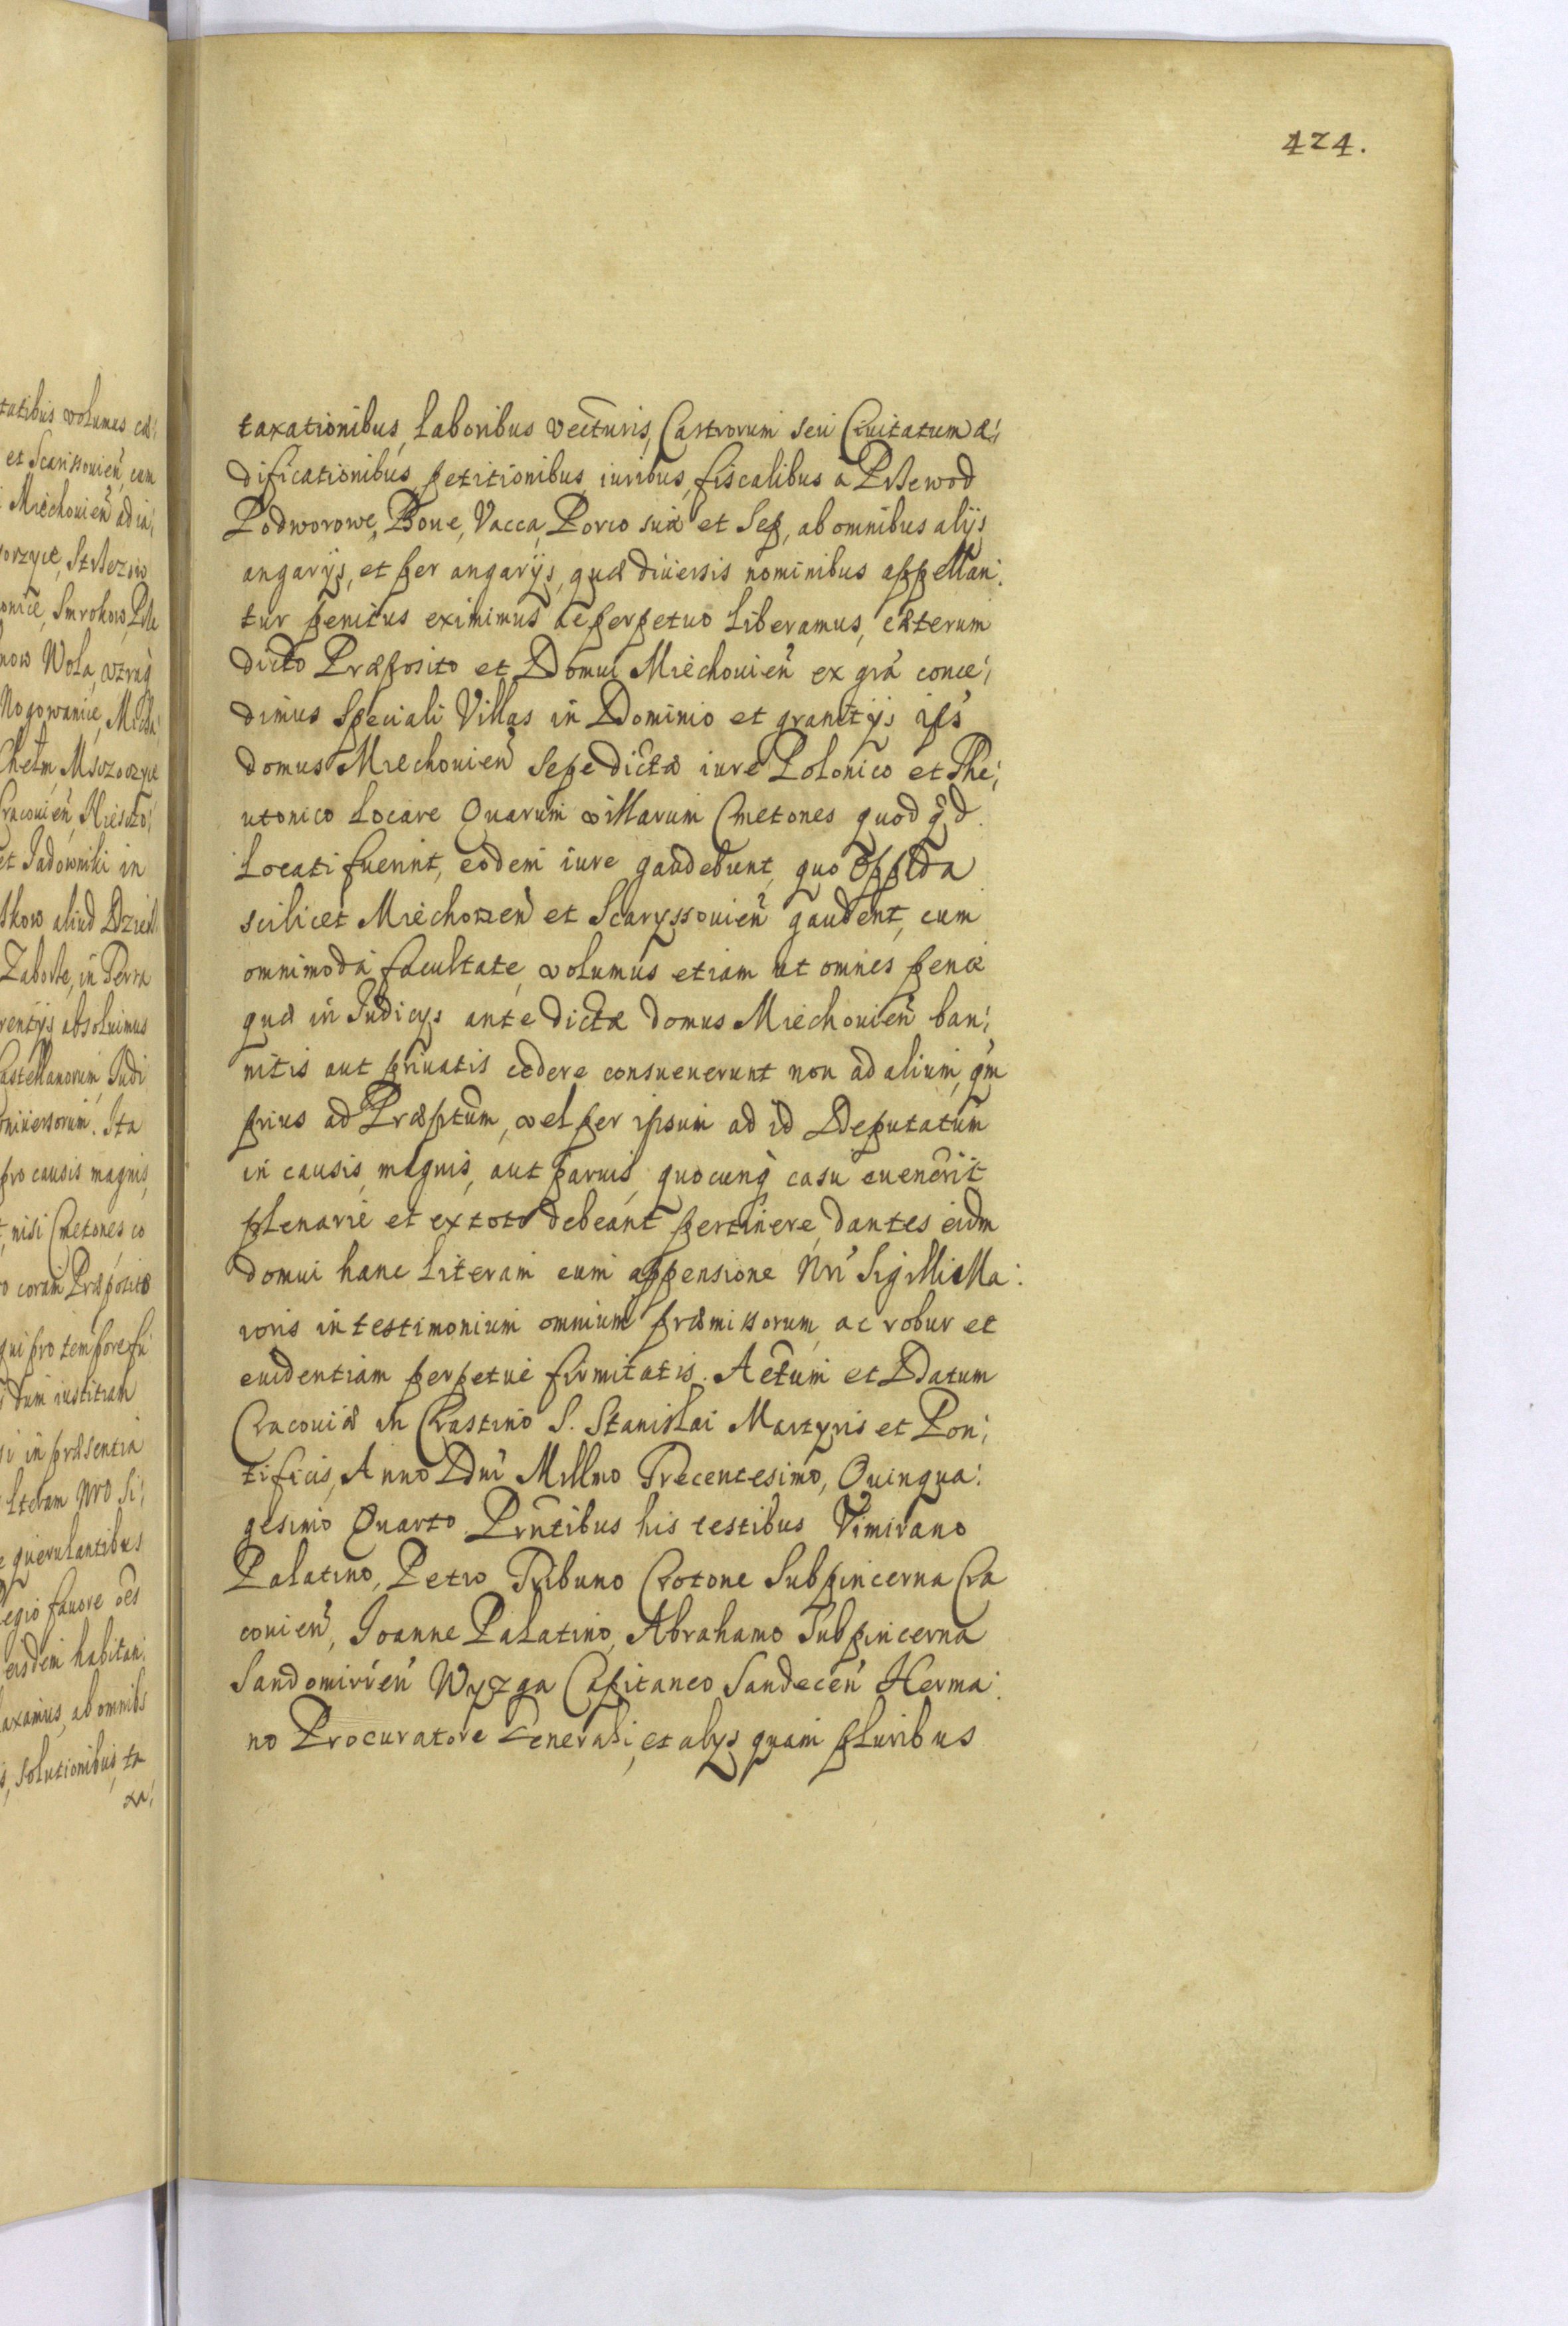 424.
tatibus volumus cæ:
et Scarissouien̄, cum
Miechouien̄ ad ia:
orzyce, Strzezow
onice, Smrokow, Prze
now Wola, vtraq̀
Nogowanice, Micha:
Chełm, Mszoczyce
Cracouien̄, Kiesczo:
et Jadowniki in
skow aliud Dzier
Zaborze, in Terra
rentijs absoluimus
Castellanorum, Judi
vniuersorum. Ita
pro causis magnis,
t, nisi Cmetones co
o coram Præposito
qui pro tempore fu
dum iustitiam
si in præsentia
literam nr̄o Si:
e querulantibus
egio fauore oēs
eisdem habitan:
laxamus, ab omnibs
s, solutionibus, ta
xa:
taxationibus, laboribus vecturis, Castrorum seu Ciuitatum æ:
dificationibus, petitionibus, iuribus, fiscalibus a Przewod
Podworowe, Boue, Vacca, Porco suæ et Sep, ab omnibus alijs
angarijs, et per angarijs, quæ diuersis nominibus appellan:
tur penitus eximimus ac perpetuo liberamus, cæterum
dicto Præposito et Domui Miechouien̄ ex grā conce:
dimus speciali Villas in Dominio et granitijs ips̄
domus Miechouien̄ sepe dictæ iure Polonico et The:
utonico locare Quarum villarum Cmetones quod q̄d
Locati fuerint, eodem iure gaudebunt, quo Oppida
scilicet Miechouien̄ et Scaryssouien̄ gaudent, cum
omnimoda facultate, volumus etiam ut omnes penæ
quæ in Judicijs ante dictæ domus Miechouien̄ ban:
nitis aut priuatis cedere consueuerunt non ad alium, qm̄
prius ad Præptum, vel per ipsum ad id Deputatum
in causis, magnis, aut paruis, quocunq̀ casu euenerit
plenarie et ex toto debeant pertinere, dantes eidm
domui hanc literam cum appensione Nri̅ Sigilli Ma:
ioris in testimonium omnium præmissorum, ac robur et
euidentiam perpetue firmitatis. Actum et Datum
Cracouiæ in Crastino S. Stanislai Martyris et Pon:
tificis, Anno Dni̅ Millmo Trecentesimo, Quinqua:
gesimo Quarto Prn̄tibus his testibus Vimirano
Palatino, Petro Tribuno Crotone Subpincerna Cra
couien̄, Joanne Palatino, Abrahamo Subpincerna
Sandomirien̄ Wyzga Capitaneo Sandecen̄ Herma:
no Procuratore Generali, et alijs quam pluribus